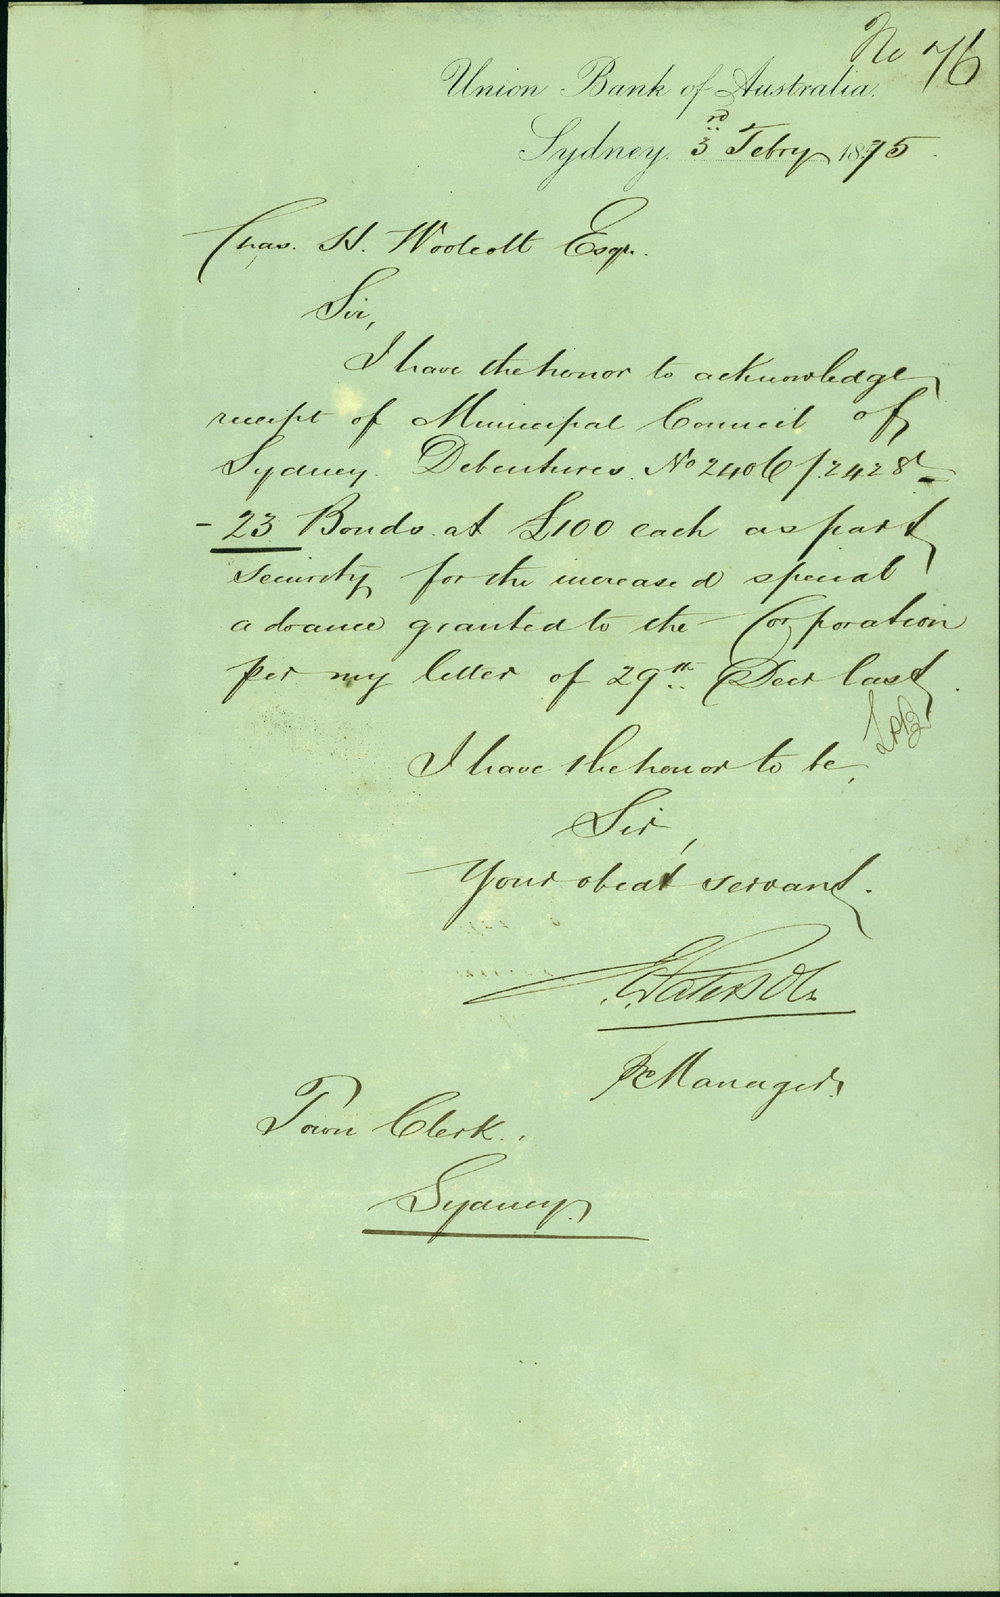 No 76
Union Bank of Australia.
Sydney. 3rd Febry 1875
Chas. H. Woolcott Esqr.
Sir,
I have the honor to acknowledge
receipt of Municipal Council of
Sydney. Debentures. No 2406/2428 -
- 23 Bonds at £100 each as part
security for the increased special
advance granted to the Corporation
per my letter of 29th Decr last.
I have the honor to be,
Sir,
Your obedt servant.
Manager.
Town Clerk.
Sydney.